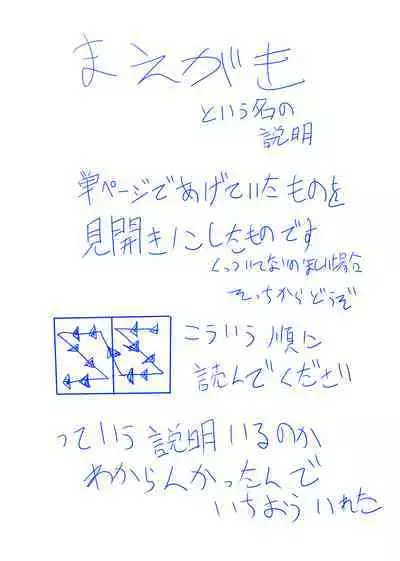 まえがき
という名の
説明
単ページであげていたものを
見開きにしたものです
くっついてないのまし場合
そっちからどうぞ
こういう順に
読んでください
っていう説明いるのか
わからんかったんで
いちおういれた